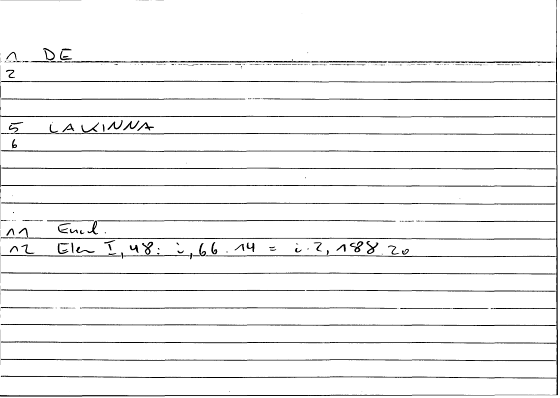 1 DE
2
5 LAKINNA
6
11 Eucl.
12 Elem I, 48: i, 66.14 = i.2, 188 20